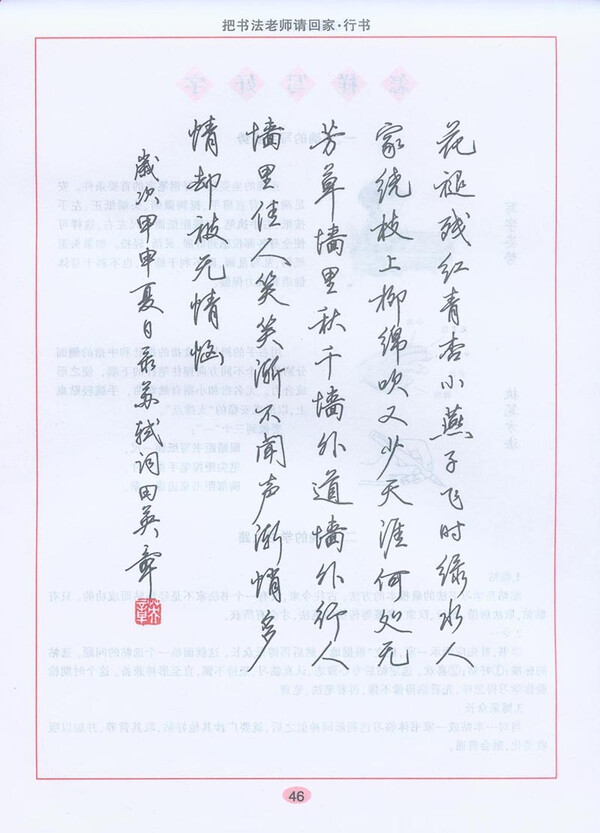 把书法老师请回家·行书
花褪残红青杏小燕子飞时绿水人
家绕枝上柳绵吹又少天涯何处无
芳草墙里秋千墙外道墙外行人
墙里佳人笑笑渐不闻声渐悄多
情却被无情恼
歲次甲申夏日录苏轼词田英章
46